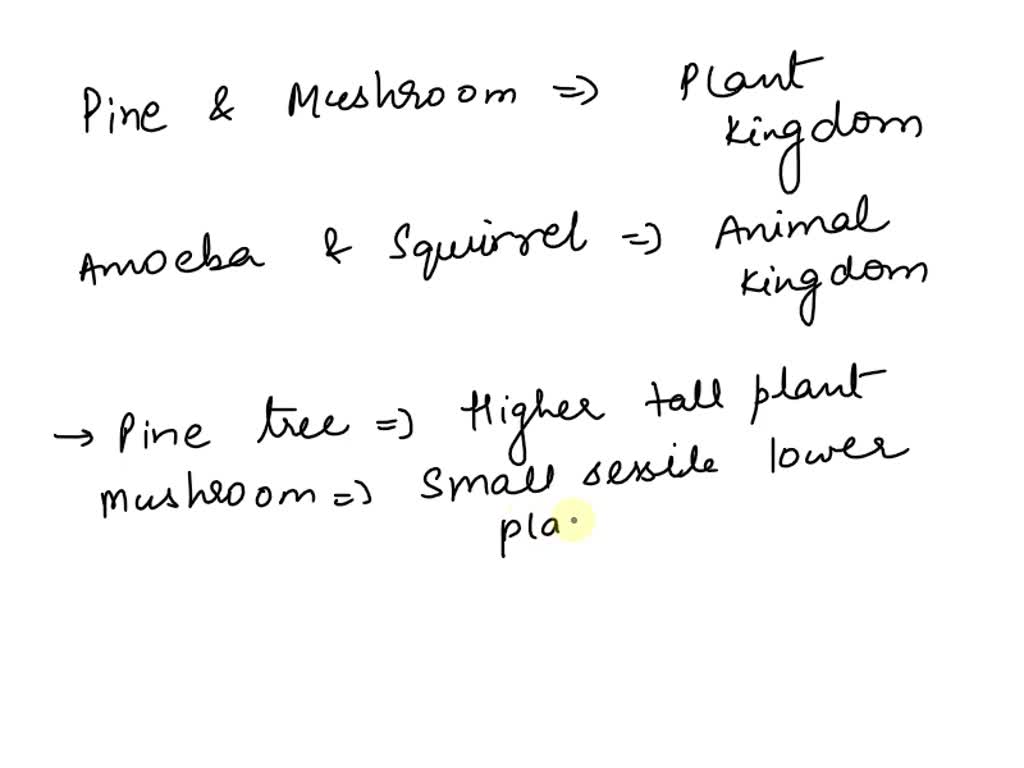 Pine & Mushroom => Plant
Kingdom
Amoeba & Squirrel => Animal
Kingdom
→ Pine tree => Higher tall plant
Mushroom => Small sessile lower
pla